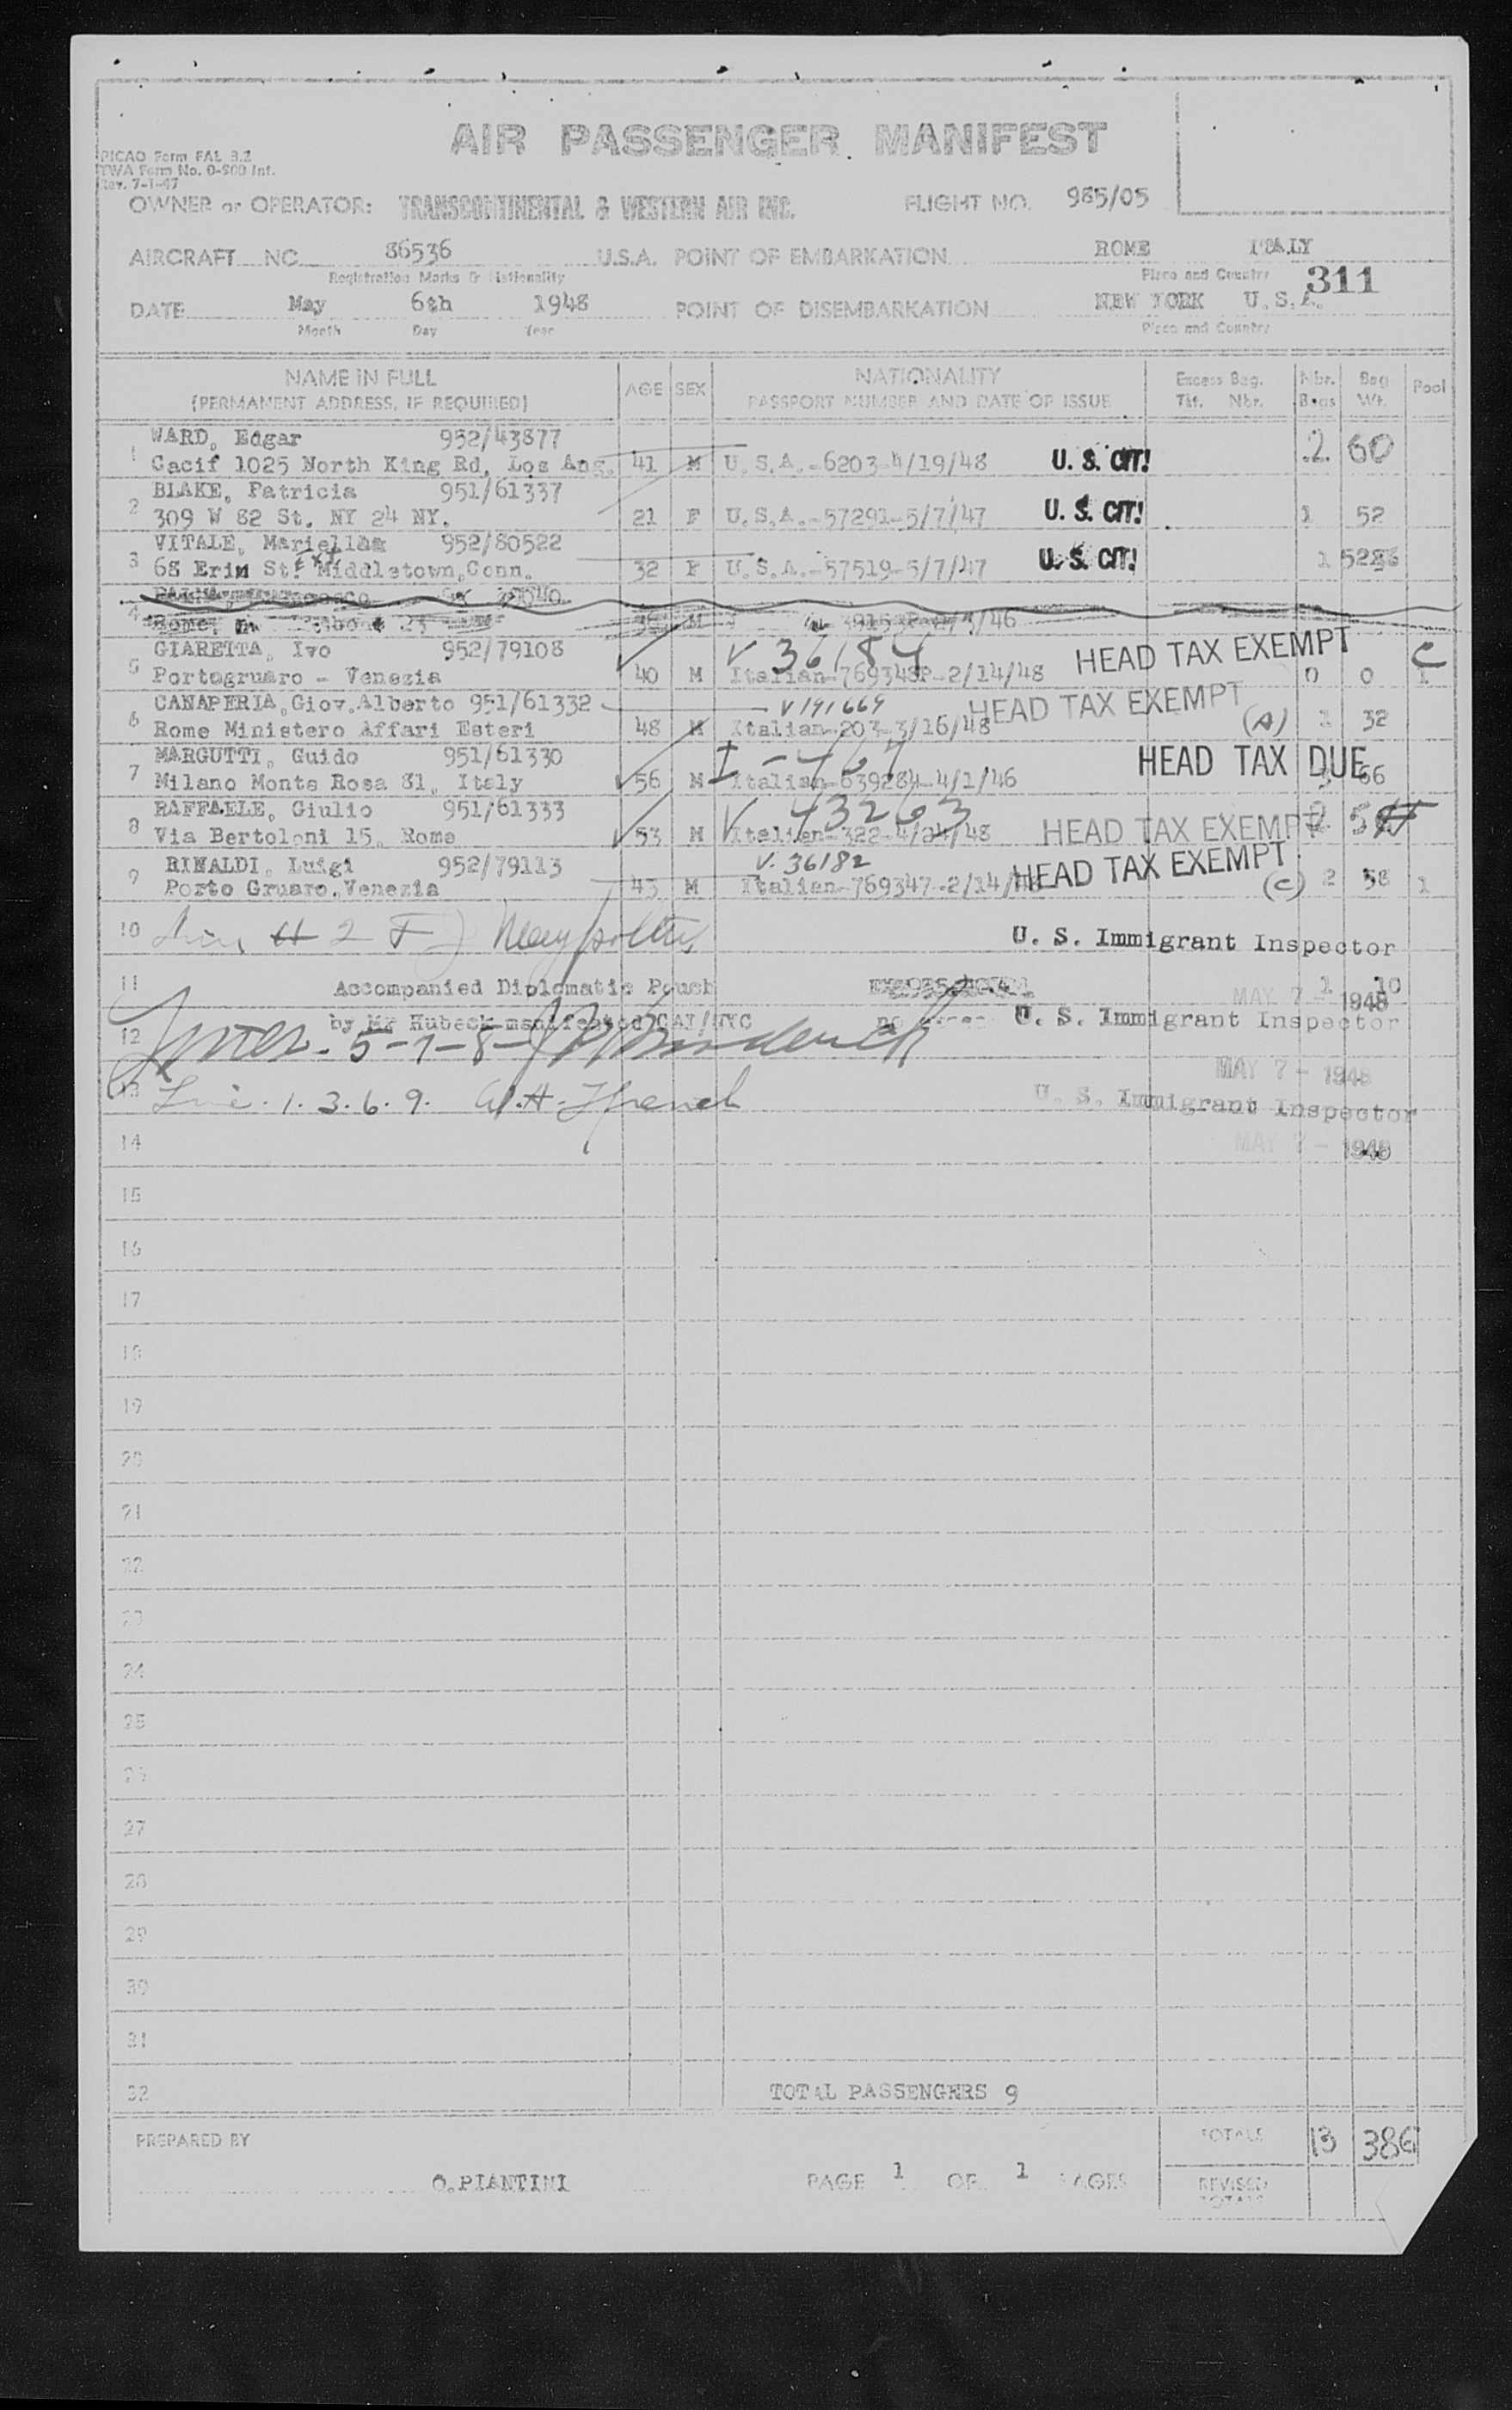 AIR PASSENGER MANIFEST
PICAO Form FAL 3.2
TWA Form No. O-900 Inf.
Rev. 7-1-47
OWNER or OPERATOR: TRANSCONTINENTAL & WESTERN AIR INC. FLIGHT NO. 985/05
AIRCRAFT NC 86536 U.S.A. POINT OF EMBARKATION ROME ITALY
Registration Marks & Nationality Place and Country
311
DATE May 6th 1948 POINT OF DISEMBARKATION NEW YORK U.S.A.
Month Day Year Place and Country
NAME IN FULL AGE SEX NATIONALITY Excess Bag. Nbr. Bag Pool
(PERMANENT ADDRESS, IF REQUIRED) PASSPORT NUMBER AND DATE OF ISSUE Tkt. Nbr. Bags Wt.
WARD, Edgar 952/43877
1 Cacif 1025 North King Rd, Los Ang. 41 M U.S.A.-6203-4/19/48 U. S. CIT! 2 60
BLAKE, Patricia 951/61337
2 309 W 82 St. NY 24 NY. 21 F U.S.A.-57291-5/7/47 U. S. CIT! 1 52
VITALE, Mariella 952/80522
3 68 Erin St. Middletown,Conn. 32 F U.S.A.-57519-5/7/47 U. S. CIT! 1
4 Rome, M /46
GIARETTA, Ivo 952/79108 V 36184 HEAD TAX EXEMPT C
5 Portogruaro - Venezia 40 M Italian-769348P-2/14/48 0 0 1
CANAPERIA,Giov.Alberto 951/61332 V191669 HEAD TAX EXEMPT
6 Rome Ministero Affari Esteri 48 M Italian-203-3/16/48 (A) 1 32
MARGUTTI, Guido 951/61330 HEAD TAX DUE
7 Milano Monte Rosa 81, Italy 56 M Italian-639284-4/1/46 66
RAFFAELE, Giulio 951/61333 V 43263
8 Via Bertoloni 15, Rome 53 M Italian-322-4/24/48 HEAD TAX EXEMPT 2
RINALDI, Luigi 952/79113 V. 36182 HEAD TAX EXEMPT
9 Porto Gruaro,Venezia 43 M Italian-769347-2/14/48 (C) 2 58 1
10 U. S. Immigrant Inspector
11 Accompanied Diplomatic Pouch 1 10
MAY 7 - 1948
12 by Mr Hubeck manifested CAI/NYC U. S. Immigrant Inspector
5-7-8-
MAY 7 - 1948
13 Line. 1. 3. 6. 9. W.H. French U. S. Immigrant Inspector
14 MAY 7 - 1948
15
16
17
18
19
20
21
22
23
24
25
26
27
28
29
30
31
32 TOTAL PASSENGERS 9
PREPARED BY TOTALS 13 386
O.PIANTINI PAGE 1 OF 1 PAGES REVISED
TOTALS